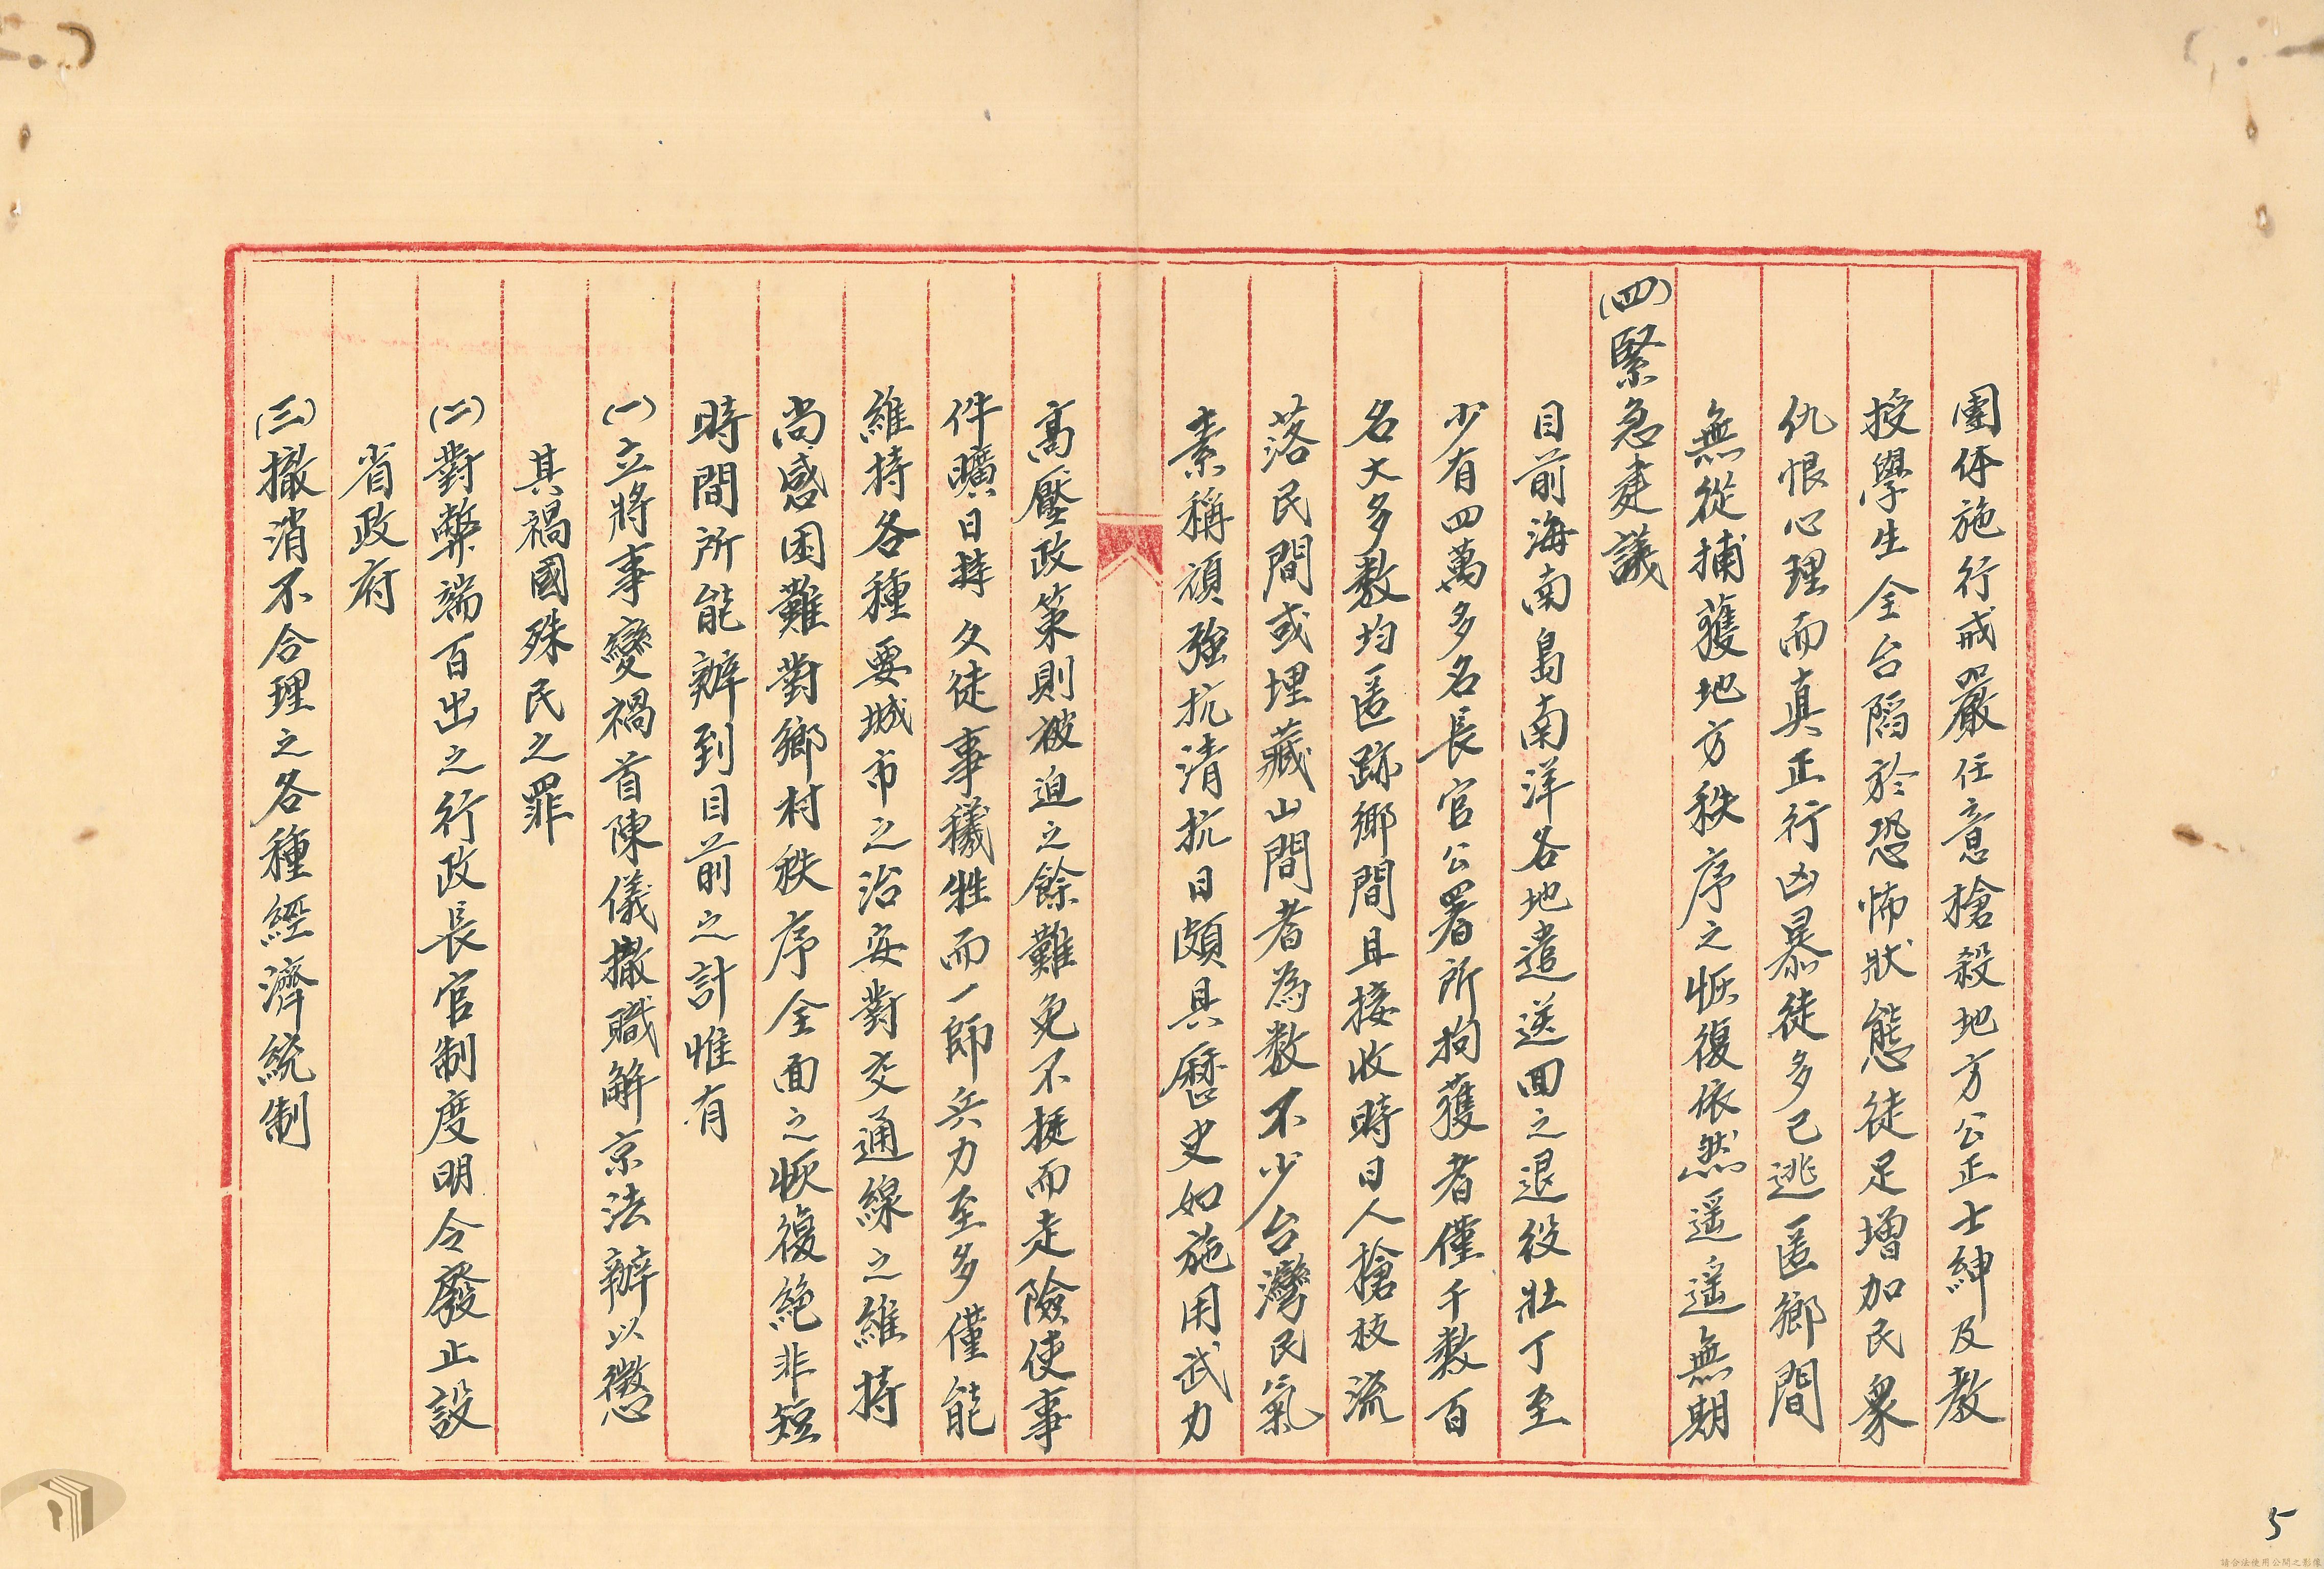 團体施行戒嚴任意槍殺地方公正士紳及教
授學生全台陷於恐怖狀態徒足增加民衆
仇恨心理而真正行凶暴徒多已逃匿鄉間
無從捕獲地方秩序之恢復依然遥遥無期
(四)緊急建議
目前海南島南洋各地遣送回之退役壯丁至
少有四萬多名長官公署所拘獲者僅千数百
名大多数均匿跡鄉間且接收時日人槍枝流
落民間或埋藏山間者為数不少台灣民氣
素稱頑強抗清抗日頗具歷史如施用武力
高壓政策則被迫之餘難免不挺而走險使事
件曠日持久徒事犧牲而一師兵力至多僅能
維持各種要城市之治安對交通線之維持
尚感困難對鄉村秩序全面之恢復絕非短
時間所能辦到目前之計惟有
(一)立將事變禍首陳儀撤職解京法辦以懲
其禍國殊民之罪
(二)對弊端百出之行政長官制度明令廢止設
省政府
(三)撤消不合理之各種經濟統制
5
請合法使用公開之影像